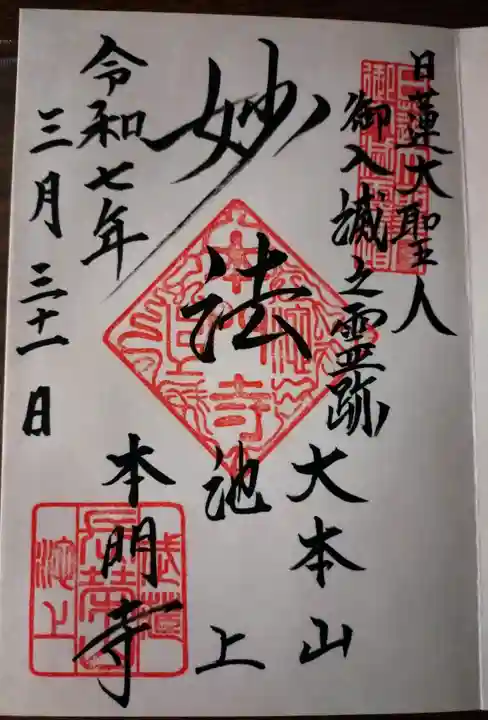 日蓮大聖人
御入滅之霊跡
大本山
池上
妙法
本門寺
令和七年
三月三十一日